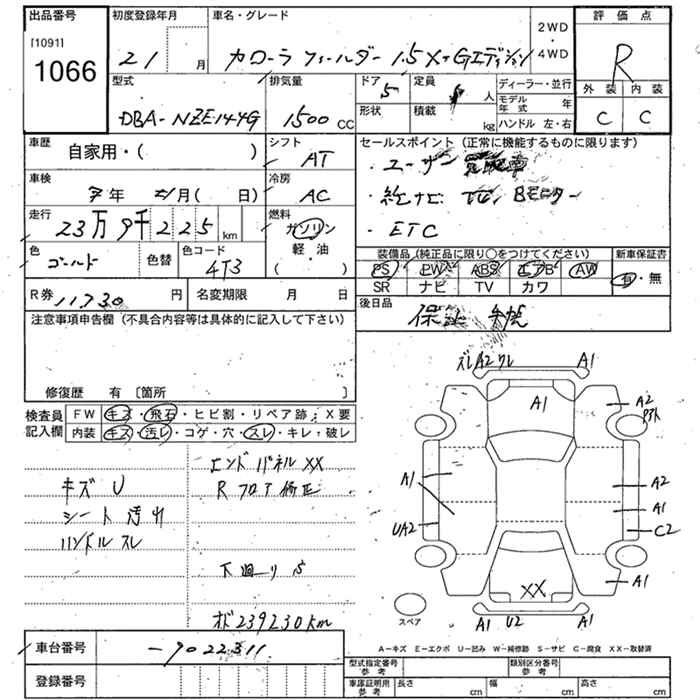 出品番号
[1091]
1066
初度登録年月
21 月
車名・グレード
カローラ フィールダー 1.5X-Gエディション
2WD
・
4WD
評価点
R
外装 内装
C C
型式
DBA-NZE144G
排気量
1500 CC
ドア
5
定員
人
形状
積載
kg
ディーラー・並行
モデル年式 年
ハンドル 左・右
車歴
自家用・( )
シフト
AT
車検
年 月( 日)
冷房
AC
走行
23万9千225km
燃料
ガソリン
軽・油
( ・ )
色
ゴールド
色替
色コード
4T3
R券 11730 円
名変期限 月 日
セールスポイント (正常に機能するものに限ります)
・ユーザー
・純ナビ TV Bモニター
・ETC
装備品 (純正品に限り○をつけてください)
PS PW ABS エアB AW
SR ナビ TV カワ
新車保証書
有・無
後日品
保証 手帳
注意事項申告欄 (不具合内容等は具体的に記入して下さい)
修復歴 有 〔箇所 〕
検査員記入欄
FW キズ・飛石・ヒビ割・リペア跡・X要
内装 キズ・汚レ・コゲ・穴・スレ・キレ・破レ
キズ U
シート 汚れ
ハンドル スレ
エンドパネル XX
R フロア 修正
下廻り S
オド 239230km
ズレ A2 ワレ
A1
A1
A2
A1
A2
A1
UA2
C2
A1
XX
A1 U2 A1
スペア
A-キズ E-エクボ U-凹み W-補修跡 S-サビ C-腐食 XX-取替済
車台番号
-7022311
登録番号
型式指定番号
参考
類別区分番号
参考
車庫証明用
参考
長さ cm 幅 cm 高さ cm